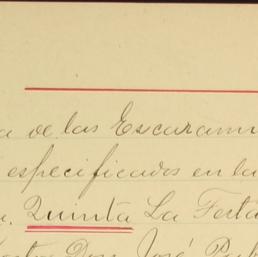 a de las Escaram
especificados en la
Quinta La Testa
Don José Pab